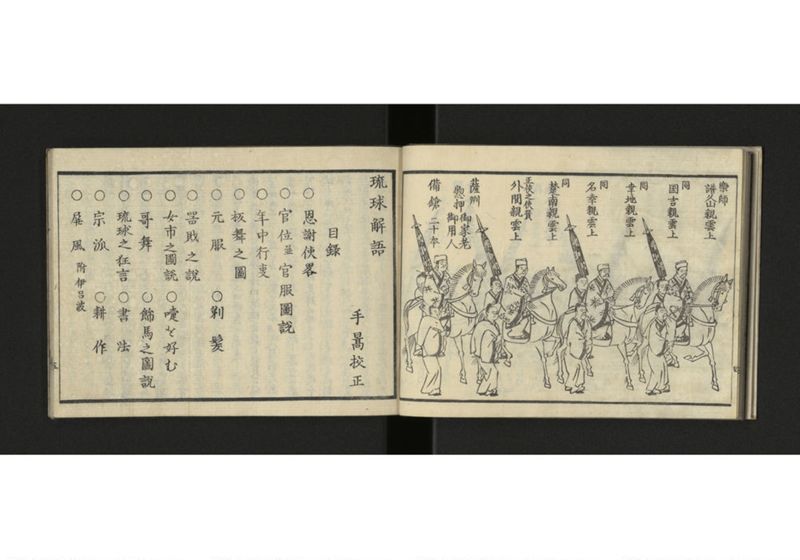 樂師
譜久山親雲上
同
國吉親雲上
同
幸地親雲上
同
名幸親雲上
同
楚南親雲上
正使之使賛
外間親雲上
薩州
殿押 御家老 御用人
備鎗二十本
琉球解語
校正
目録
○恩謝使畧
○官位並官服圖説
○年中行叓
○扳舞之圖
○元服 ○剃髪
○噐財之説
○女市之圖説 ○嚏を好む
○哥舞 ○飾馬之圖説
○琉球之狂言 ○書法
○宗派 ○耕作
○屏風 附伊呂波